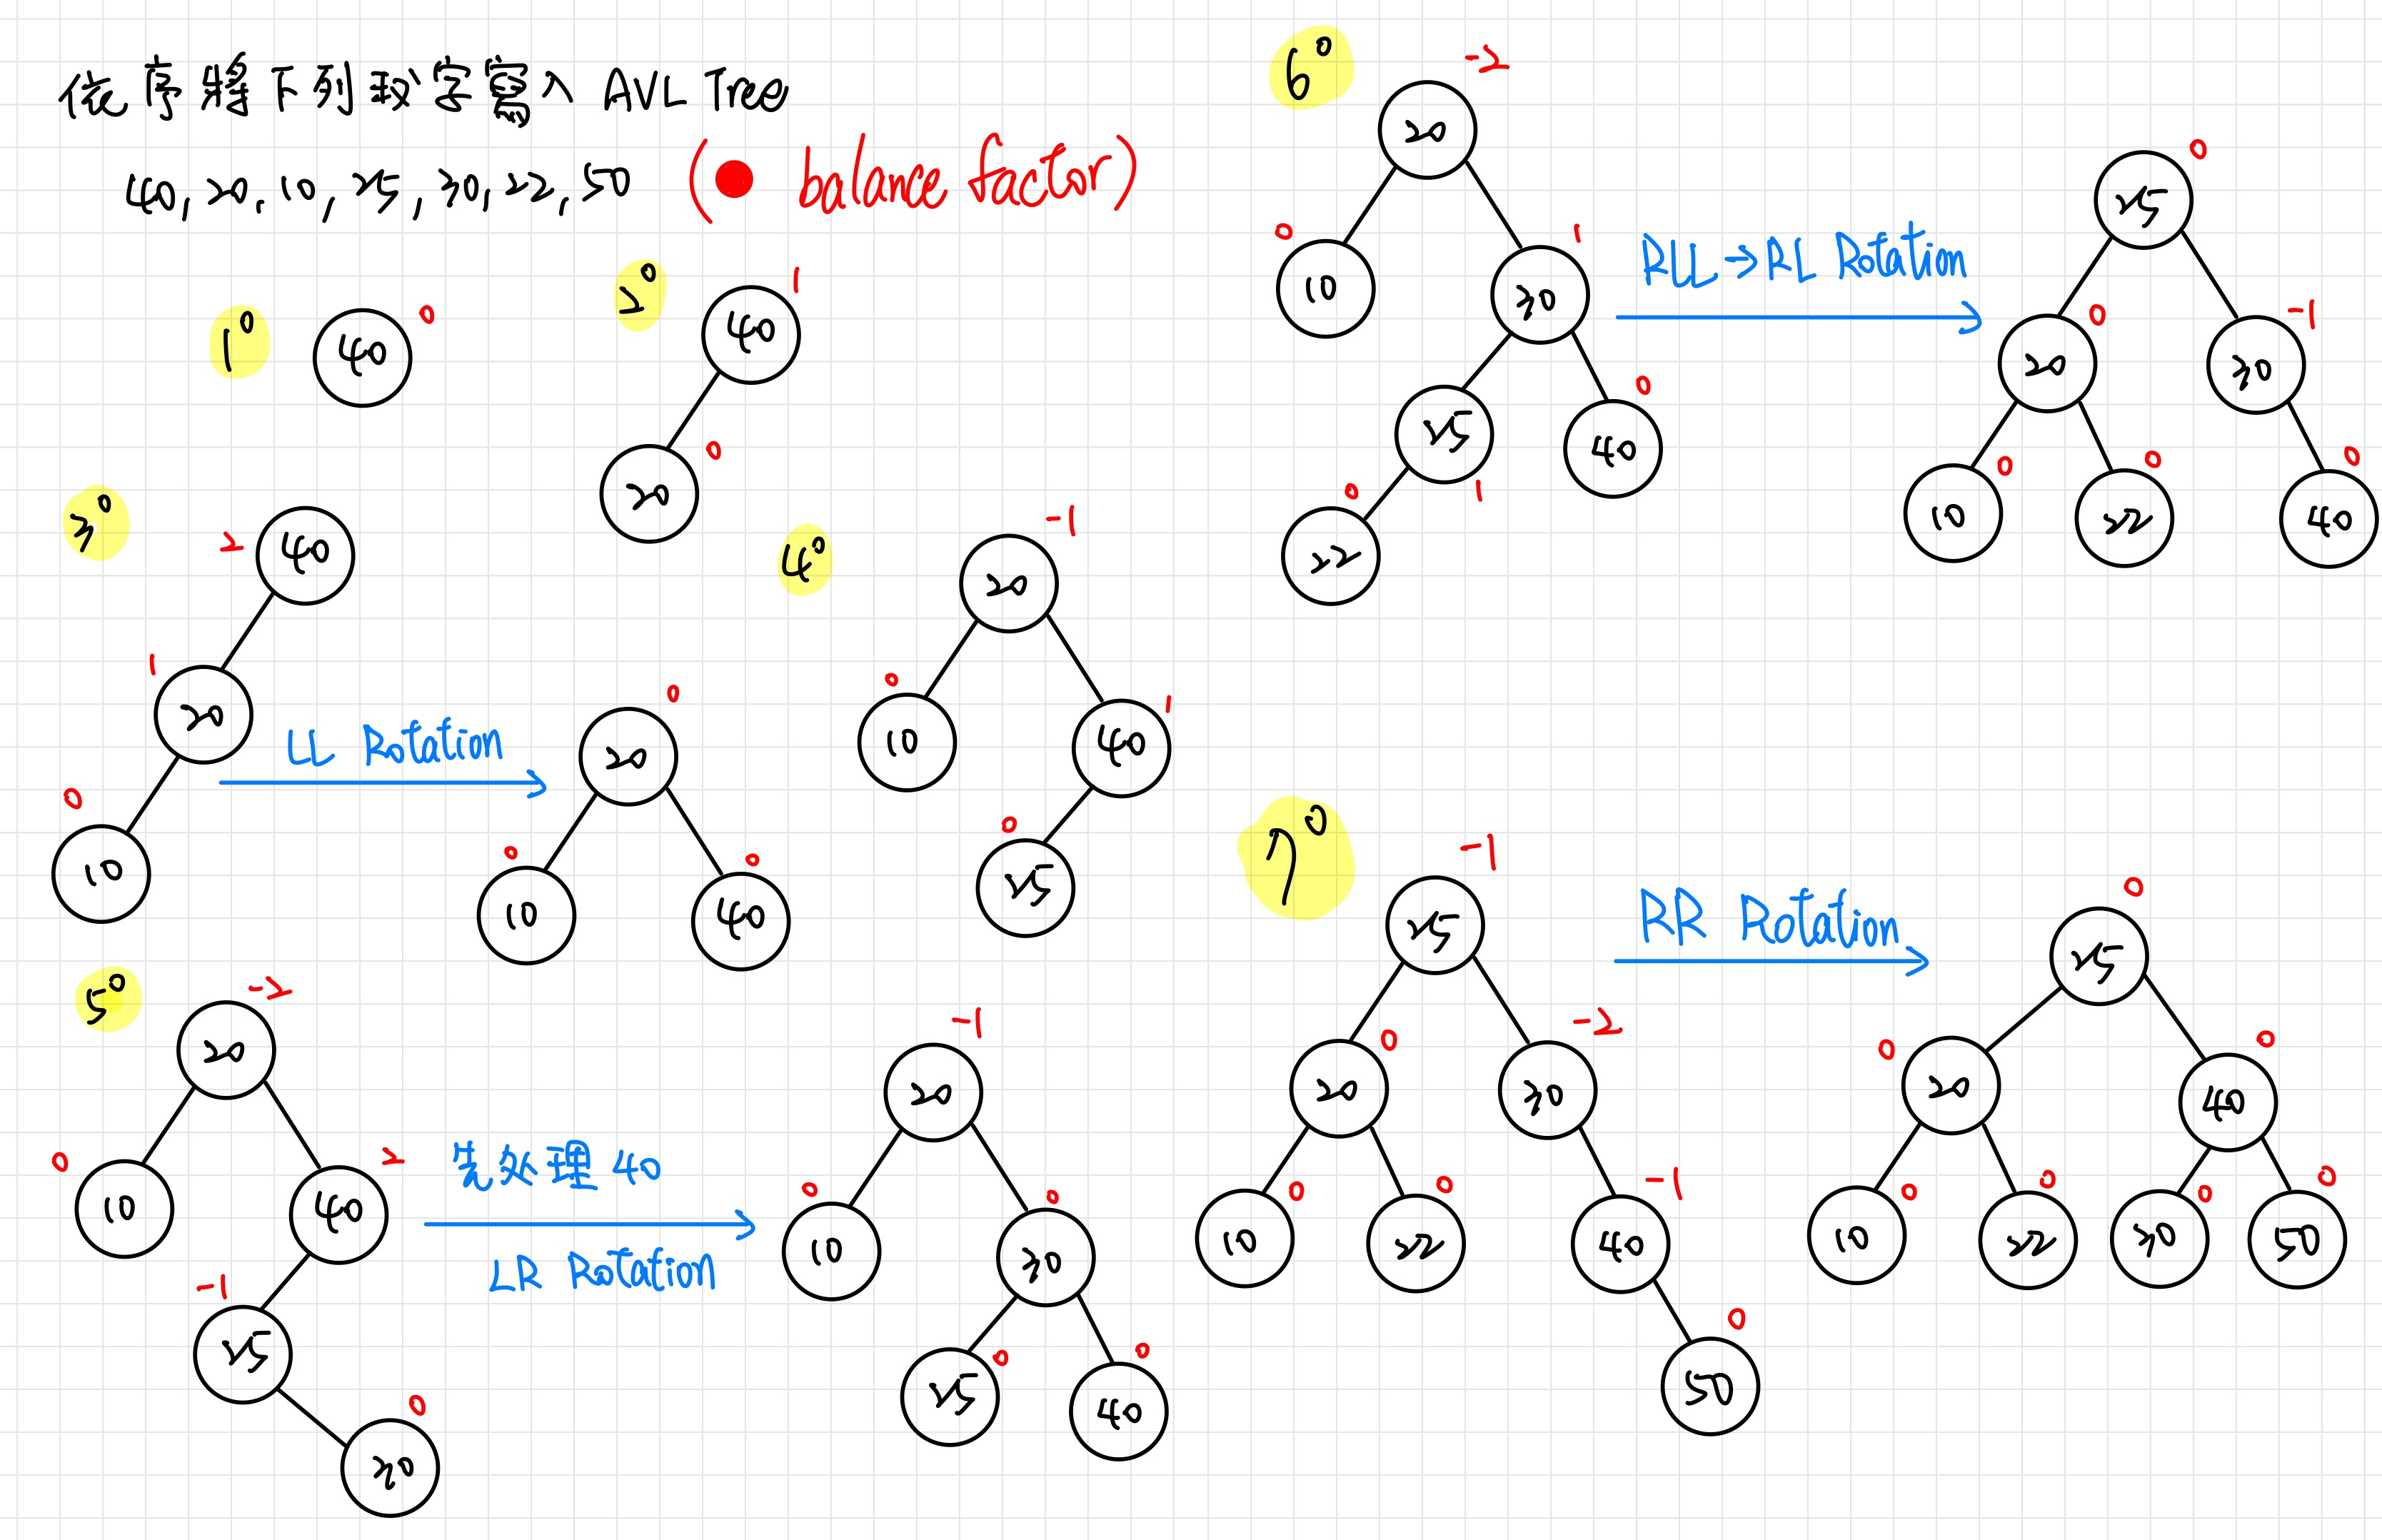 依序將下列数字置入 AVL Tree
40, 20, 10, 25, 30, 22, 50 (● balance factor)
1°
40 0
2°
40 1
20 0
3°
2 40
1 20
0 10
LL Rotation
20 0
0 10
0 40
4°
20 -1
0 10
40 1
0 25
5°
20 -2
0 10
40 2
-1 25
30 0
先处理 40
LR Rotation
20 -1
0 10
30 0
25 0
40 0
6°
20 -2
0 10
30 1
25 1
40 0
0 22
RLL→RL Rotation
25 0
20 0
30 -1
10 0
22 0
40 0
7°
25 -1
20 0
30 -2
10 0
22 0
40 -1
50 0
RR Rotation
25 0
0 20
40 0
10 0
22 0
30 0
50 0